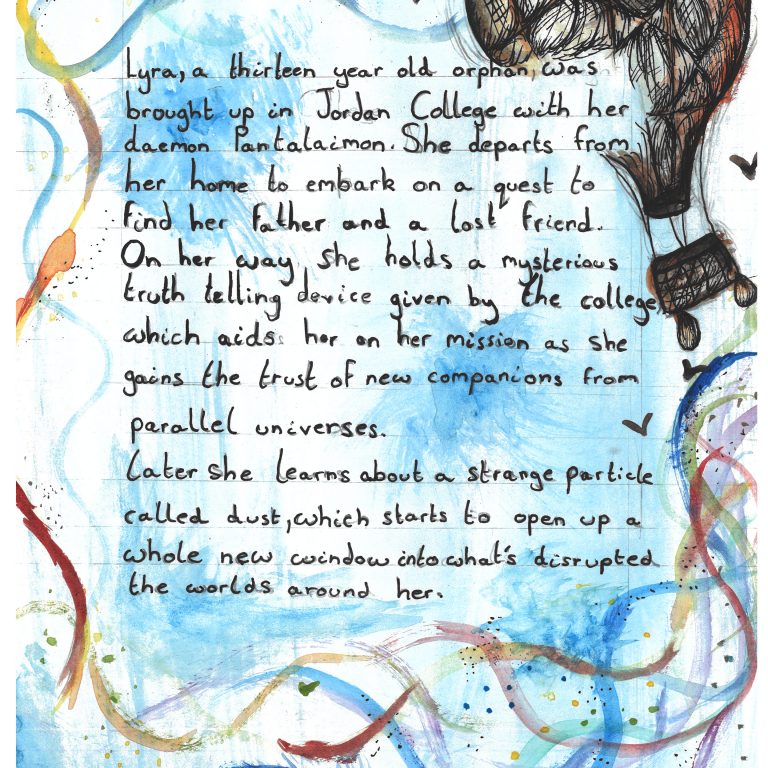 Lyra, a thirteen year old orphan, was
brought up in Jordan College with her
daemon Pantalaimon. She departs from
her home to embark on a quest to
find her father and a lost friend.
On her way she holds a mysterious
truth telling device given by the college,
which aids her on her mission as she
gains the trust of new companions from
parallel universes.
Later she learns about a strange particle
called dust, which starts to open up a
whole new window into what's disrupted
the worlds around her.